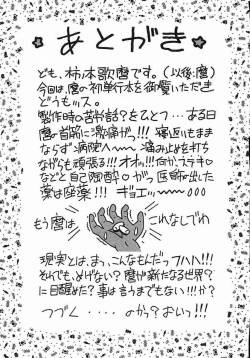 あとがき
ども、柿ノ本歌麿です。(以後:麿)
今回は、麿の初単行本を御覧いただき
どうもッス。
製作時の苦労話?をひとつ…ある日
麿の首筋に激痛がっ!!!寝返りもまま
ならず病院へ〜 痛み止めを打ち
ながらも頑張る!!!オオッ!!!なんか、ステキ♡
などと自己限酔○がっ、医師が出した
薬は座薬!!!ギョエッ〜〜○○○
もう麿は
これなしでわ
現実とは、まっ、こんなもんだっフハハ!!!
それでも、めげない?麿が新たなる世界?
に目醒めた?事は言うまでもない!!!か?
つづく・・・・のか?おいっ!!!